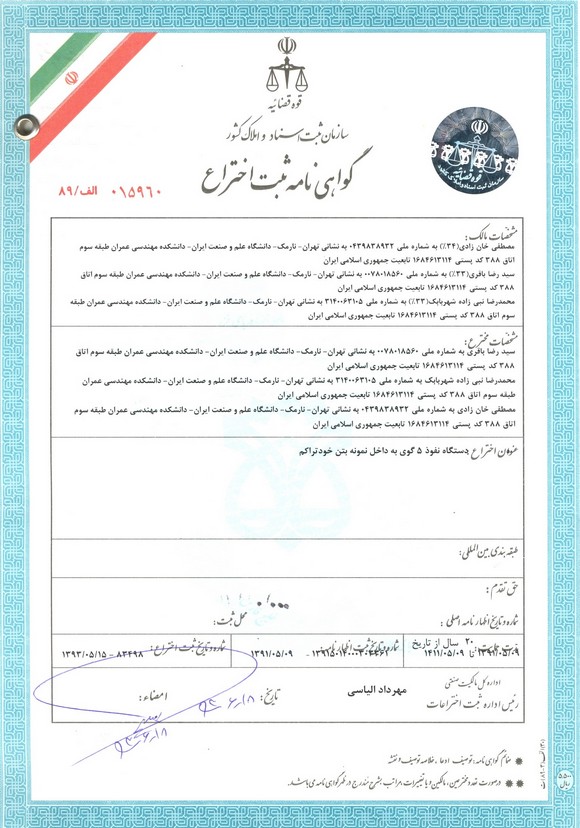 قوه قضائیه
سازمان ثبت اسناد و املاک کشور
گواهی نامه ثبت اختراع
۰۱۵۹۶۰ الف/۸۹
قوه قضائیه
مشخصات مالک:
مصطفی خان زادی(۳۴٪) به شماره ملی ۰۴۳۹۸۳۸۹۳۲ به نشانی تهران- نارمک- دانشگاه علم و صنعت ایران- دانشکده مهندسی عمران طبقه سوم
اتاق ۳۸۸ کد پستی ۱۶۸۴۶۱۳۱۱۴ تابعیت جمهوری اسلامی ایران
سید رضا باقری(۳۳٪) به شماره ملی ۰۰۷۸۰۱۸۵۶۰ به نشانی تهران- نارمک- دانشگاه علم و صنعت ایران- دانشکده مهندسی عمران طبقه سوم اتاق
۳۸۸ کد پستی ۱۶۸۴۶۱۳۱۱۴ تابعیت جمهوری اسلامی ایران
محمدرضا نبی زاده شهربابک(۳۳٪) به شماره ملی ۳۱۴۰۰۶۳۱۰۵ به نشانی تهران- نارمک- دانشگاه علم و صنعت ایران- دانشکده مهندسی عمران طبقه
سوم اتاق ۳۸۸ کد پستی ۱۶۸۴۶۱۳۱۱۴ تابعیت جمهوری اسلامی ایران
مشخصات مخترع:
سید رضا باقری به شماره ملی ۰۰۷۸۰۱۸۵۶۰ به نشانی تهران- نارمک- دانشگاه علم و صنعت ایران- دانشکده مهندسی عمران طبقه سوم اتاق
۳۸۸ کد پستی ۱۶۸۴۶۱۳۱۱۴ تابعیت جمهوری اسلامی ایران
محمدرضا نبی زاده شهربابک به شماره ملی ۳۱۴۰۰۶۳۱۰۵ به نشانی تهران- نارمک- دانشگاه علم و صنعت ایران- دانشکده مهندسی عمران
طبقه سوم اتاق ۳۸۸ کد پستی ۱۶۸۴۶۱۳۱۱۴ تابعیت جمهوری اسلامی ایران
مصطفی خان زادی به شماره ملی ۰۴۳۹۸۳۸۹۳۲ به نشانی تهران- نارمک- دانشگاه علم و صنعت ایران- دانشکده مهندسی عمران طبقه سوم
اتاق ۳۸۸ کد پستی ۱۶۸۴۶۱۳۱۱۴ تابعیت جمهوری اسلامی ایران
عنوان اختراع: دستگاه نفوذ ۵ گوی به داخل نمونه بتن خودتراکم
طبقه بندی بین المللی:
حق تقدم:
شماره و تاریخ اظهار نامه اصلی: محل ثبت:
مدت حمایت ۲۰ سال از تاریخ شماره و تاریخ ثبت اظهارنامه: شماره و تاریخ ثبت اختراع:
۱۳۹۱/۰۵/۰۹ تا ۱۴۱۱/۰۵/۰۹ ۱۳۹۱/۰۵/۰۹ ۸۳۴۹۸ - ۱۳۹۳/۰۵/۱۵
اداره کل مالکیت صنعتی
رئیس اداره ثبت اختراعات مهرداد الیاسی تاریخ: امضاء:
ضمائم گواهی نامه: توصیف، ادعا، خلاصه توصیف و نقشه
درصورت نقده مخترعین، مالکین و یا تغییرات، مراتب بشرح مندرج در ظهر گواهی نامه می باشد.
۵۵۰۰ ریال